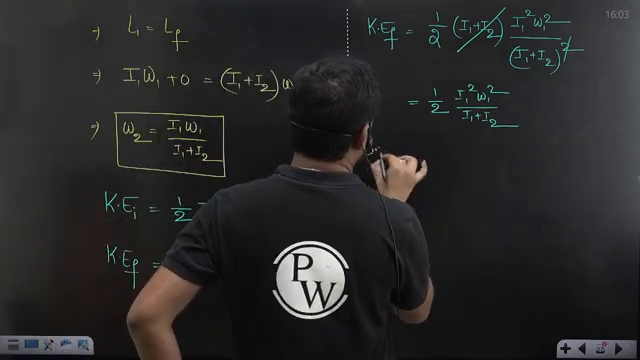 ⇒ L₁ = L_f
⇒ I₁W₁ + 0 = (I₁+I₂) ω
⇒ ω₂ = I₁W₁ / (I₁+I₂)
K.Eᵢ = 1/2
K.E_f =
K.E_f = 1/2 (I₁+I₂) I₁²ω₁² / (I₁+I₂)²
= 1/2 I₁²ω₁² / (I₁+I₂)
PW
16:03